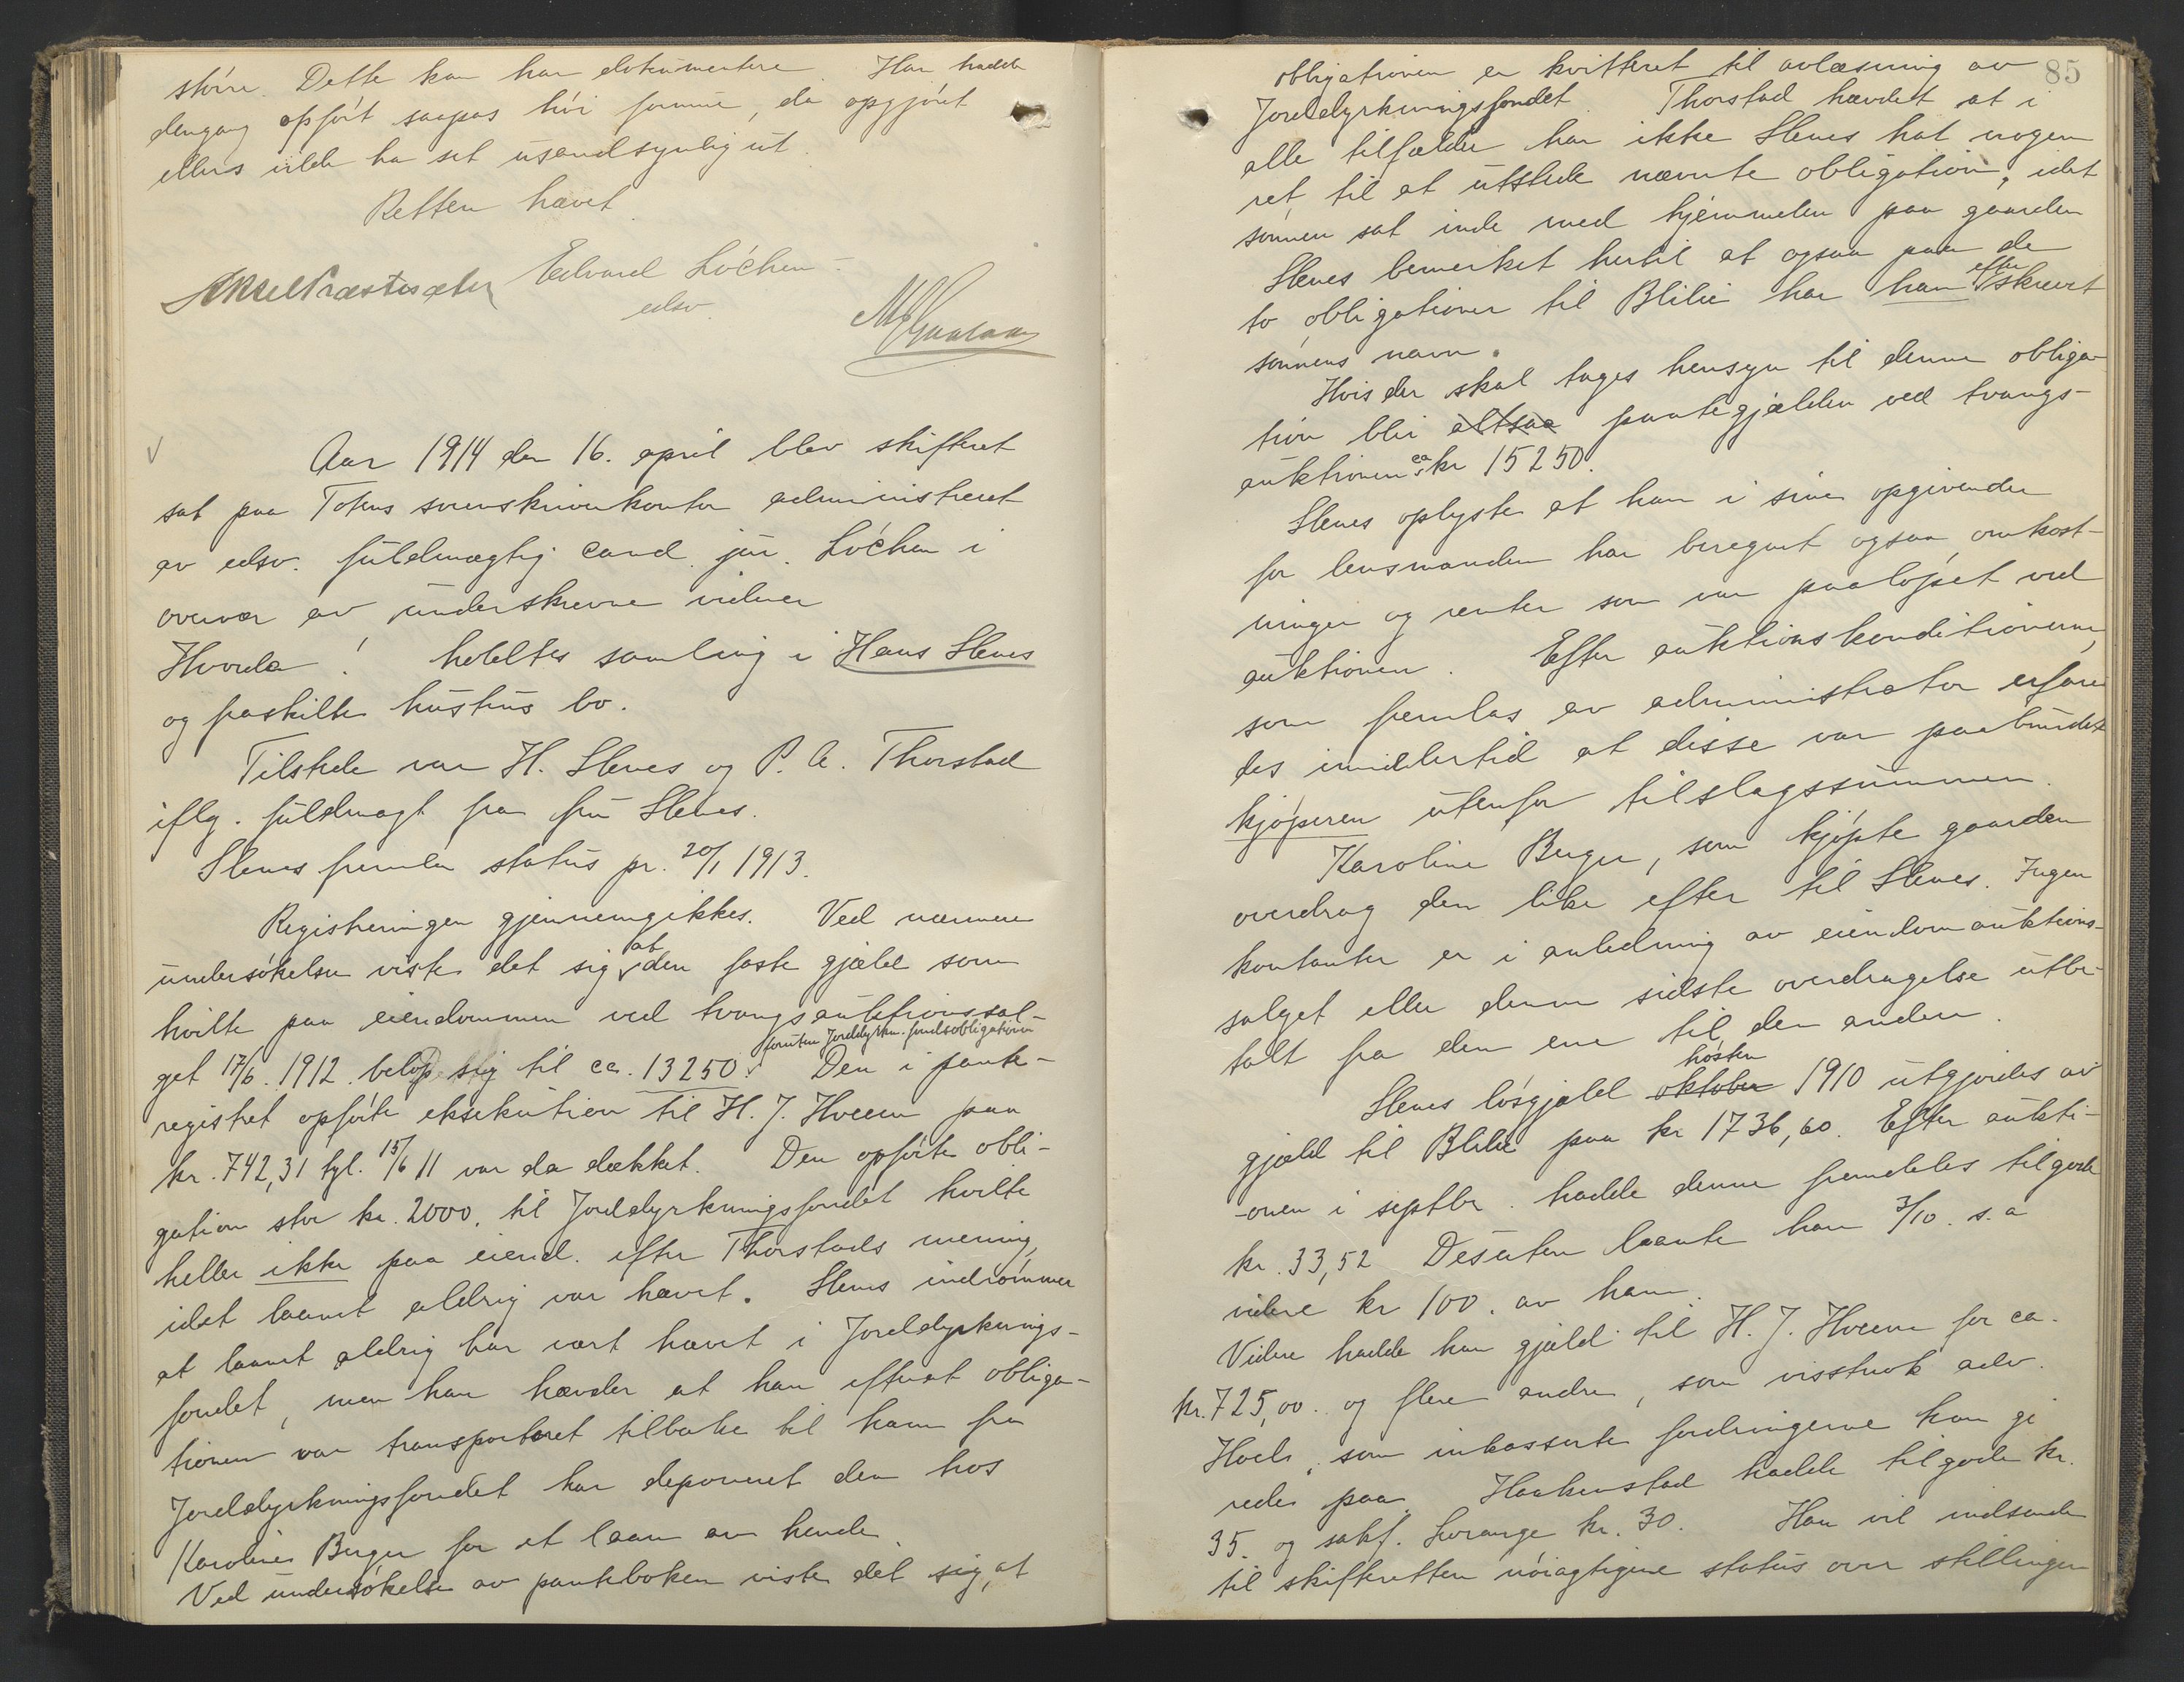 större. Dette kan han dokumentere. Han hadde
dengang opfört saapas höi summe, da opgjöret
ellers vilde ha set usandsynlig ut.
Retten hævet.
Aksel Præstesæter Edvard Löchen
edsv.
Aar 1914 den 16. april blev skifteret
sat paa Totens sorenskriverkontor administreret
av edsv. fuldmægtig cand. jur. Löchen i
overvær av underskrevne vidner
Hvorda! holdtes samling i Hans Stenes
og fraskilte hustrus bo.
Tilstede var H. Stenes og P. A. Thorstad
iflg. fuldmagt fra fru Stenes.
Stenes fremla status pr. 20/1 1913.
Registreringen gjennemgikkes. Ved nærmere
undersökelse viste det sig at den faste gjæld som
hvilte paa eiendommen ved tvangsauktionssal-
get 17/6. 1912. belöp sig til ca. 13250 foruten Jorddyrkn.fondsobligationen. Den i pante-
registret opförte eksekution til H. J. Hveem paa
kr. 742,31 tgl. 15/6 11 var da dækket. Den opförte obli-
gation stor kr. 2000, til Jorddyrkningsfondet hvilte
heller ikke paa eiend. efter Thorstads mening,
idet laanet aldrig var hævet. Stenes indrömmer
at laanet aldrig har vært hævet i Jorddyrknings-
fondet, men han hævder at han efterat obliga-
tionen var transporteret tilbake til ham fra
Jorddyrkningsfondet har deponeret den hos
Karoline Berger for et laan av hende
Ved undersökelse av panteboken viste det sig, at
85
obligationen er kvitteret til avlæsning av
Jorddyrkningsfondet. Thorstad hævdet at i
alle tilfælder har ikke Stenes hat nogen
ret til at utstede nævnte obligation, idet
sönnen sat inde med hjemmelen paa gaarden
Stenes bemerket hertil at ogsaa paa de
to obligationer til Blilie har han efterskrevet
sönnens navn.
Hvis der skal tages hensyn til denne obliga-
tion blir altsaa pantegjælden ved tvangs-
auktionen ca kr 15250.
Stenes oplyste at han i sine opgivender
for lensmanden har beregnet ogsaa omkost-
ninger og renter som var paalöpet ved
auktionen. Efter auktionskonditionerne,
som fremlas av administrator erfare-
des imidlertid at disse var paabyrdet
kjöperen utenfor tilslagssummen.
Karoline Berger, som kjöpte gaarden
overdrog den like efter til Stenes. Ingen
kontanter er i anledning av eiendomauktions-
salget eller denne sidste overdragelse utbe-
talt fra den ene til den anden.
Stenes lösgjæld oktober hösten 1910 utgjordes av
gjæld til Blilie paa kr 1736,60. Efter aukti-
onen i septbr. hadde denne fremdeles tilgode
kr. 33,52 Desuten laante han 3/10. s.a
videre kr 100. av ham.
Videre hadde han gjæld til H. J. Hveem for ca.
kr. 725,00. og flere andre, som visstnok adv.
Hoels, som inkasserte fordringerne kan gi
rede paa. Haakenstad hadde tilgode kr.
35. og sakf. Lorange kr. 30. Han vil indsende
til skifteretten nöiagtigere status over stillingen